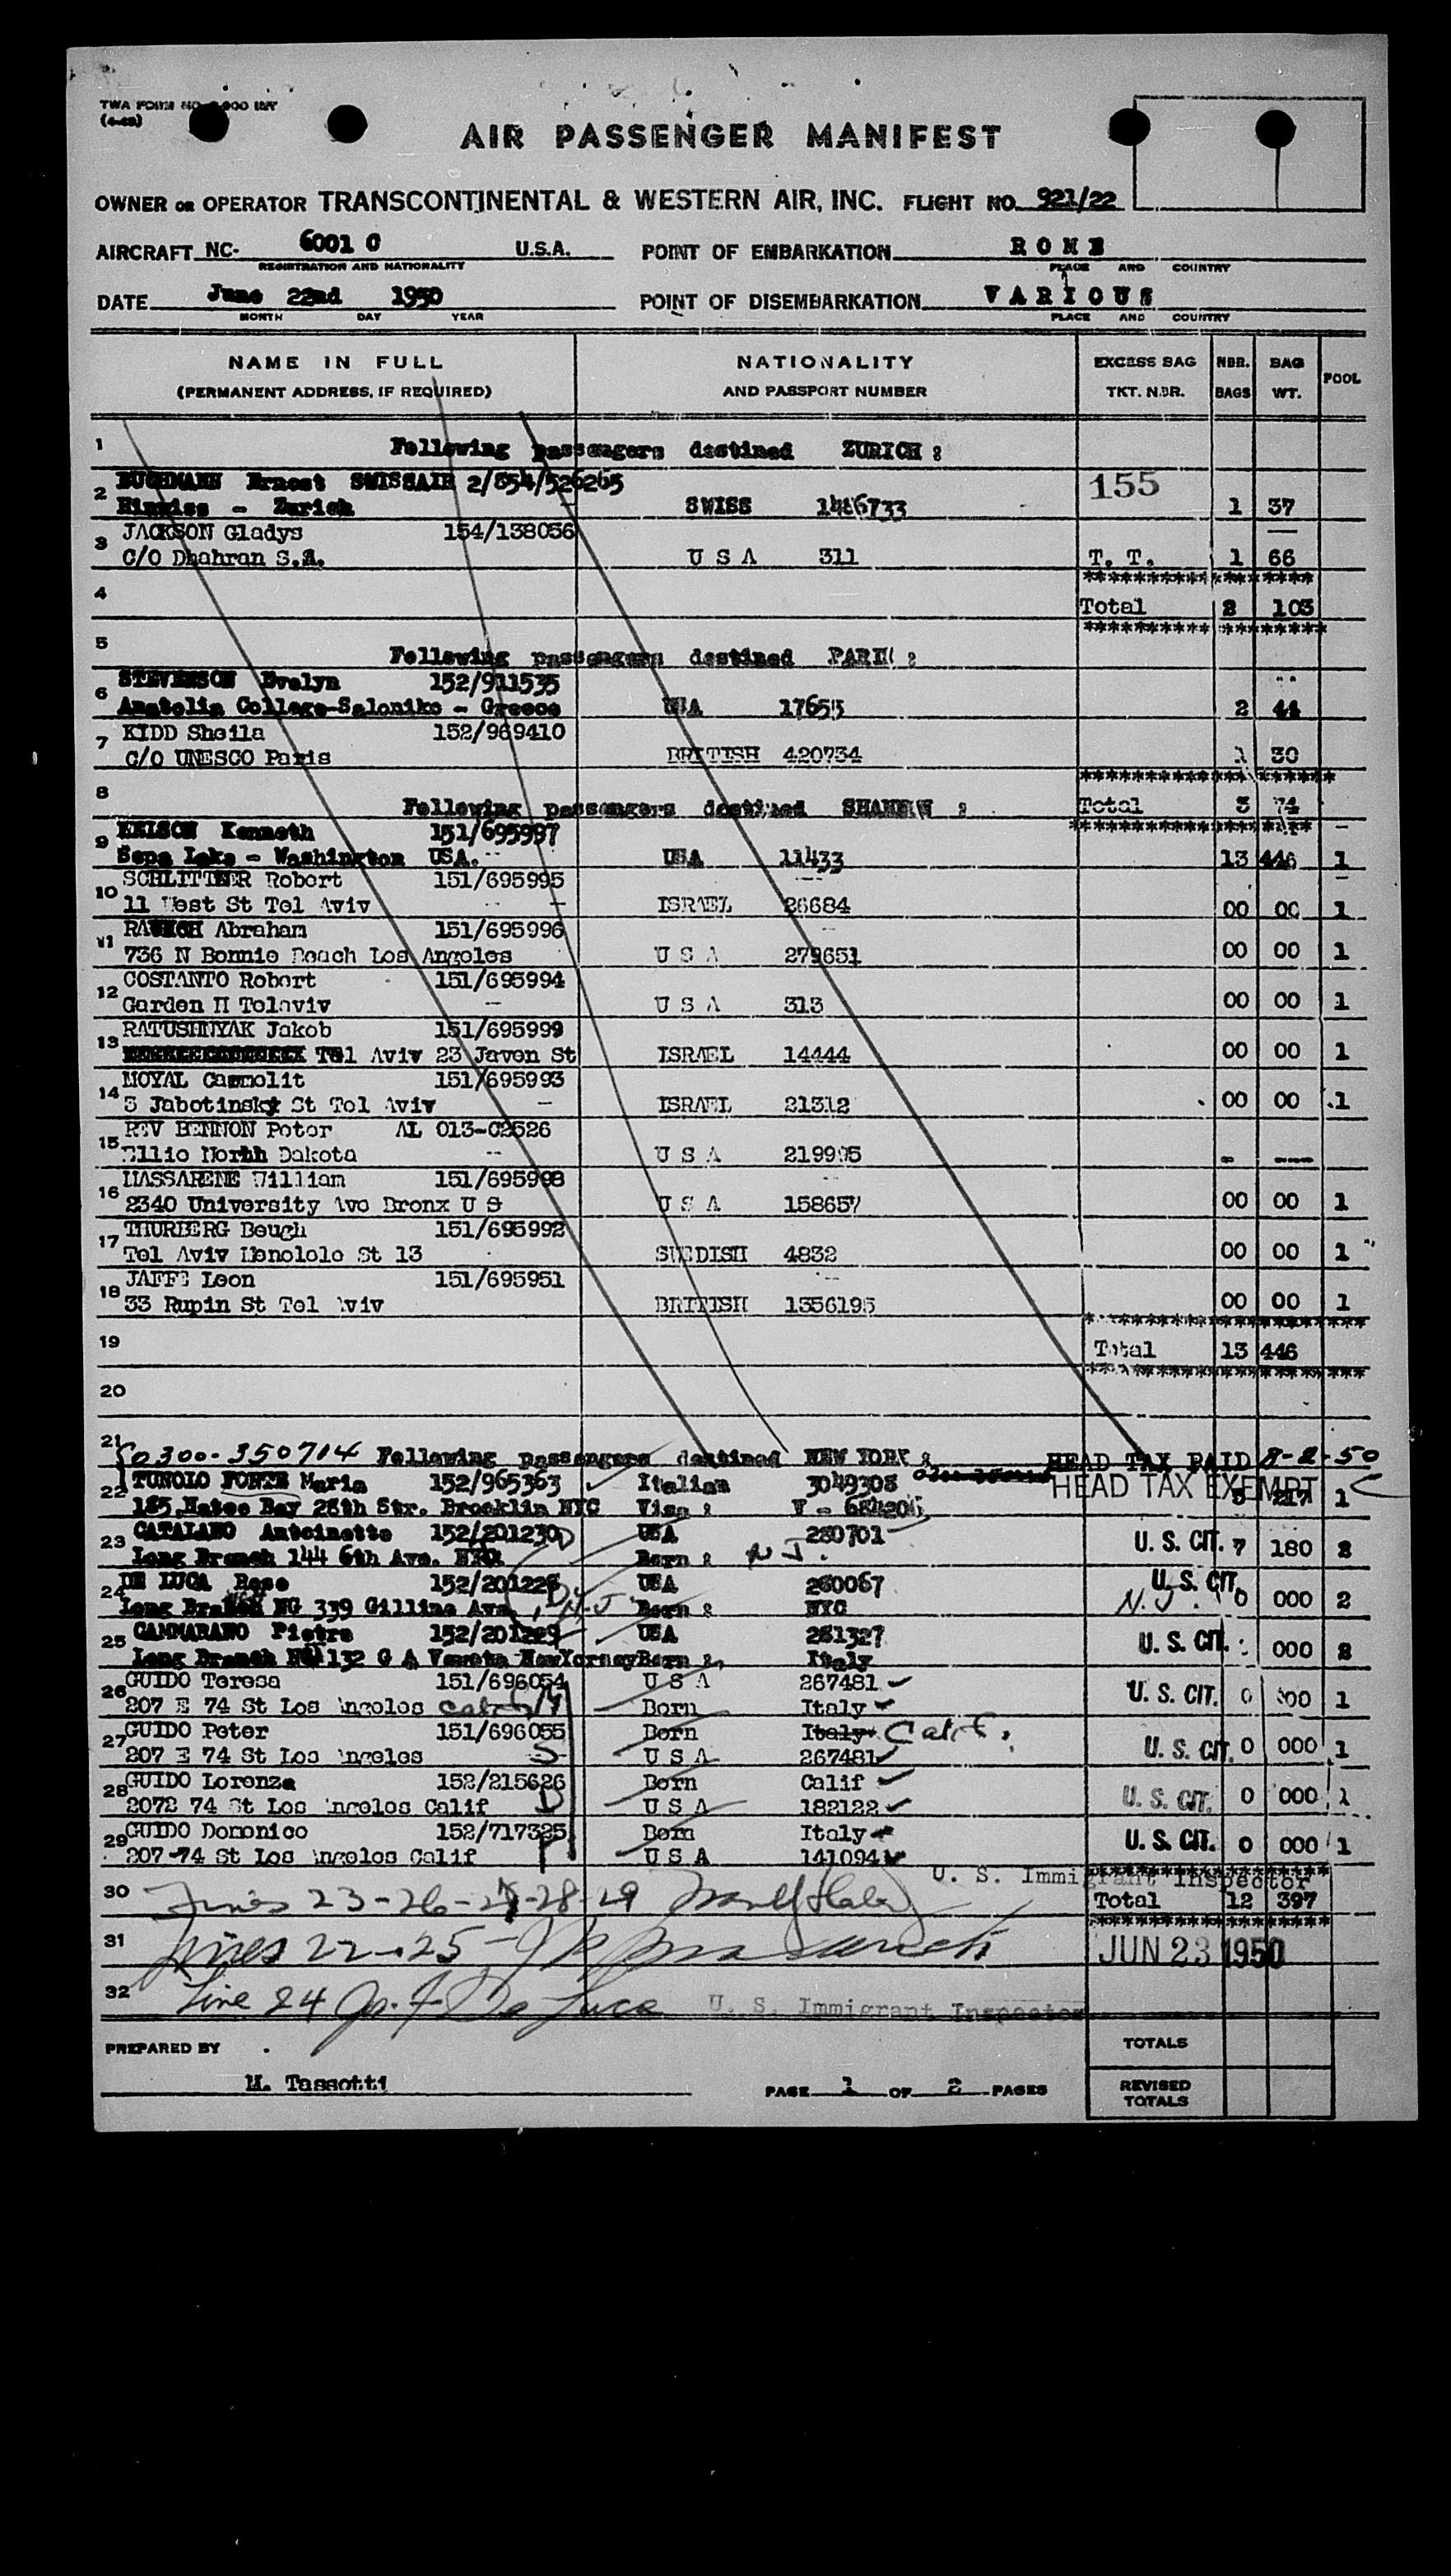 TWA FORM NO.
AIR PASSENGER MANIFEST
OWNER OR OPERATOR TRANSCONTINENTAL & WESTERN AIR, INC. FLIGHT NO. 921/22
AIRCRAFT NC- 6001 C U.S.A. POINT OF EMBARKATION ROME
REGISTRATION AND NATIONALITY PLACE AND COUNTRY
DATE June 22nd 1950 POINT OF DISEMBARKATION VARIOUS
MONTH DAY YEAR PLACE AND COUNTRY
NAME IN FULL NATIONALITY EXCESS BAG NBR. BAG POOL
(PERMANENT ADDRESS, IF REQUIRED) AND PASSPORT NUMBER TKT. NBR. BAGS WT.
1 Following passengers destined ZURICH :
2 BUCHMANN Ernest SWISSAIR 2/854/526265 155
- Zurich SWISS 1486733 1 37
3 JACKSON Gladys 154/138056
C/O Dhahran S.A. U S A 311 T. T. 1 66
4 Total 2 103
5 Following passengers destined PARIS :
6 STEVENSON Evelyn 152/911535
Anatolia College-Salonike - Greece USA 17655 2 44
7 KIDD Sheila 152/969410
C/O UNESCO Paris BRITISH 420734 1 30
8 Following passengers destined SHANNON : Total 3 74
9 NELSON Kenneth 151/695997
Sepa Lake - Washington USA. USA 11433 13 446 1
10 SCHLITTNER Robert 151/695995
11 West St Tel Aviv ISRAEL 26684 00 00 1
11 Abraham 151/695996
736 N Bonnie Beach Los Angeles U S A 279651 00 00 1
12 COSTANTO Robert 151/695994
Garden H Telaviv U S A 313 00 00 1
13 RATUSHNYAK Jakob 151/695999
Tel Aviv 23 Javen St ISRAEL 14444 00 00 1
14 MOYAL Casmolit 151/695993
3 Jabotinsky St Tel Aviv ISRAEL 21312 00 00 1
15 REV BENNON Peter AL 013-02526
Ellie North Dakota U S A 219995 - ---
16 MASSARENE William 151/695998
2340 University Ave Bronx U S U S A 158657 00 00 1
17 THURBERG Bough 151/695992
Tel Aviv Menolole St 13 SWEDISH 4832 00 00 1
18 JAFFE Leon 151/695951
33 Rupin St Tel Aviv BRITISH 1356195 00 00 1
19 Total 13 446
20
21 0300-350714 Following passengers destined NEW YORK : HEAD TAX PAID 8-2-50
22 TUNOLO FORTE Maria 152/965363 Italian 3049308 HEAD TAX EXEMPT
185 Bay 28th Str. Brooklin NYC Visa : 5 217 1
23 CATALANO Antoinette 152/201230 USA 280701 U. S. CIT. 7 180 2
Long Branch 144 6th Ave. Born : N J.
24 DE LUCA Rose 152/201226 USA 260067 U. S. CIT.
Long Branch NG 339 Gilline Ave, N.J Born : NYC N.J. 0 000 2
25 CAMMARANO Pietro 152/201229 USA 281327 U. S. CIT.
Long Branch 132 G A Veneta Born : Italy 000 2
26 GUIDO Teresa 151/696054 U S A 267481 U. S. CIT.
207 E 74 St Los Angeles Calif Born Italy 0 000 1
27 GUIDO Peter 151/696055 Born Italy Calif.
207 E 74 St Los Angeles U S A 267481 U. S. CIT. 0 000 1
28 GUIDO Lorenza 152/215626 Born Calif
2072 74 St Los Angeles Calif U S A 182122 U. S. CIT. 0 000 1
29 GUIDO Domenico 152/717325 Born Italy U. S. CIT. 0 000 1
207-74 St Los Angeles Calif U S A 141094
U. S. Immigrant Inspector
30 Lines 23-26-27-28-29 Total 12 397
31 Lines 22-25- JUN 23 1950
32 Line 24 De Luca U. S. Immigrant Inspector
PREPARED BY TOTALS
M. Tassotti PAGE 1 OF 2 PAGES REVISED TOTALS